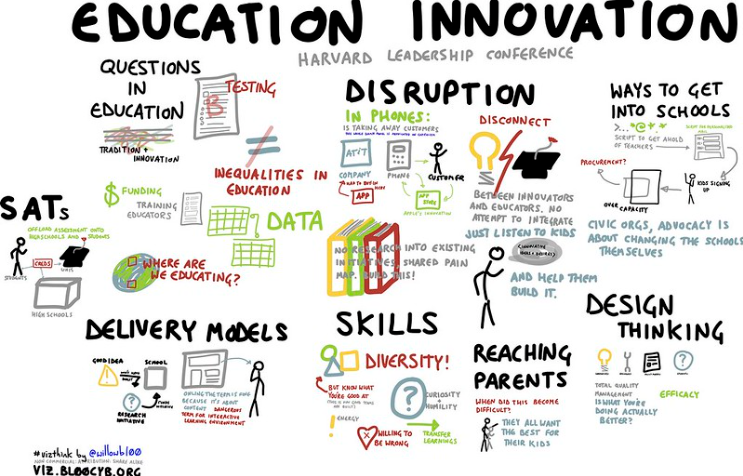 EDUCATION INNOVATION
HARVARD LEADERSHIP CONFERENCE
QUESTIONS
IN
EDUCATION
TRADITION +
INNOVATION
TESTING
B
INEQUALITIES IN
EDUCATION
$ FUNDING
TRAINING
EDUCATORS
DATA
WHERE ARE
WE EDUCATING?
SATs
OFFLOAD ASSESSMENT ONTO
HIGH SCHOOLS AND STUDENTS
STUDENTS
CREDS
UNIS
HIGH SCHOOLS
DISRUPTION
IN PHONES:
IS TAKING AWAY CUSTOMERS
AT&T
COMPANY
PHONE
CUSTOMER
APP
APP
STORE
APPLE'S INNOVATION
DISCONNECT
BETWEEN INNOVATORS
AND EDUCATORS. NO
ATTEMPT TO INTEGRATE
JUST LISTEN TO KIDS
AND HELP THEM
BUILD IT.
NO RESEARCH INTO EXISTING
INITIATIVES. SHARED PAIN
MAP. BUILD THIS!
WAYS TO GET
INTO SCHOOLS
SCRIPT TO GET AHOLD
OF TEACHERS
PROCUREMENT?
OVER CAPACITY
KIDS SIGNING
UP
CIVIC ORGS, ADVOCACY IS
ABOUT CHANGING THE SCHOOLS
THEMSELVES
DELIVERY MODELS
GOOD IDEA
SCHOOL
RESEARCH
INITIATIVE
OWNING THE TERMS IS HARD
BECAUSE IT'S ABOUT
CONTENT DANGEROUS
TERM FOR INTERACTIVE
LEARNING ENVIRONMENT
SKILLS
DIVERSITY!
BUT KNOW WHAT
YOU'RE GOOD AT
ENERGY
?
CURIOSITY
+
HUMILITY
WILLING TO
BE WRONG
TRANSFER
LEARNINGS
REACHING
PARENTS
WHEN DID THIS BECOME
DIFFICULT?
THEY ALL WANT
THE BEST FOR
THEIR KIDS
DESIGN
THINKING
TOTAL QUALITY
MANAGEMENT
IS WHAT YOU'RE
DOING ACTUALLY
BETTER?
EFFICACY
#vizthink by @willowbl00
NON COMMERCIAL. ATTRIBUTION. SHARE ALIKE
VIZ.BL00CYB.ORG